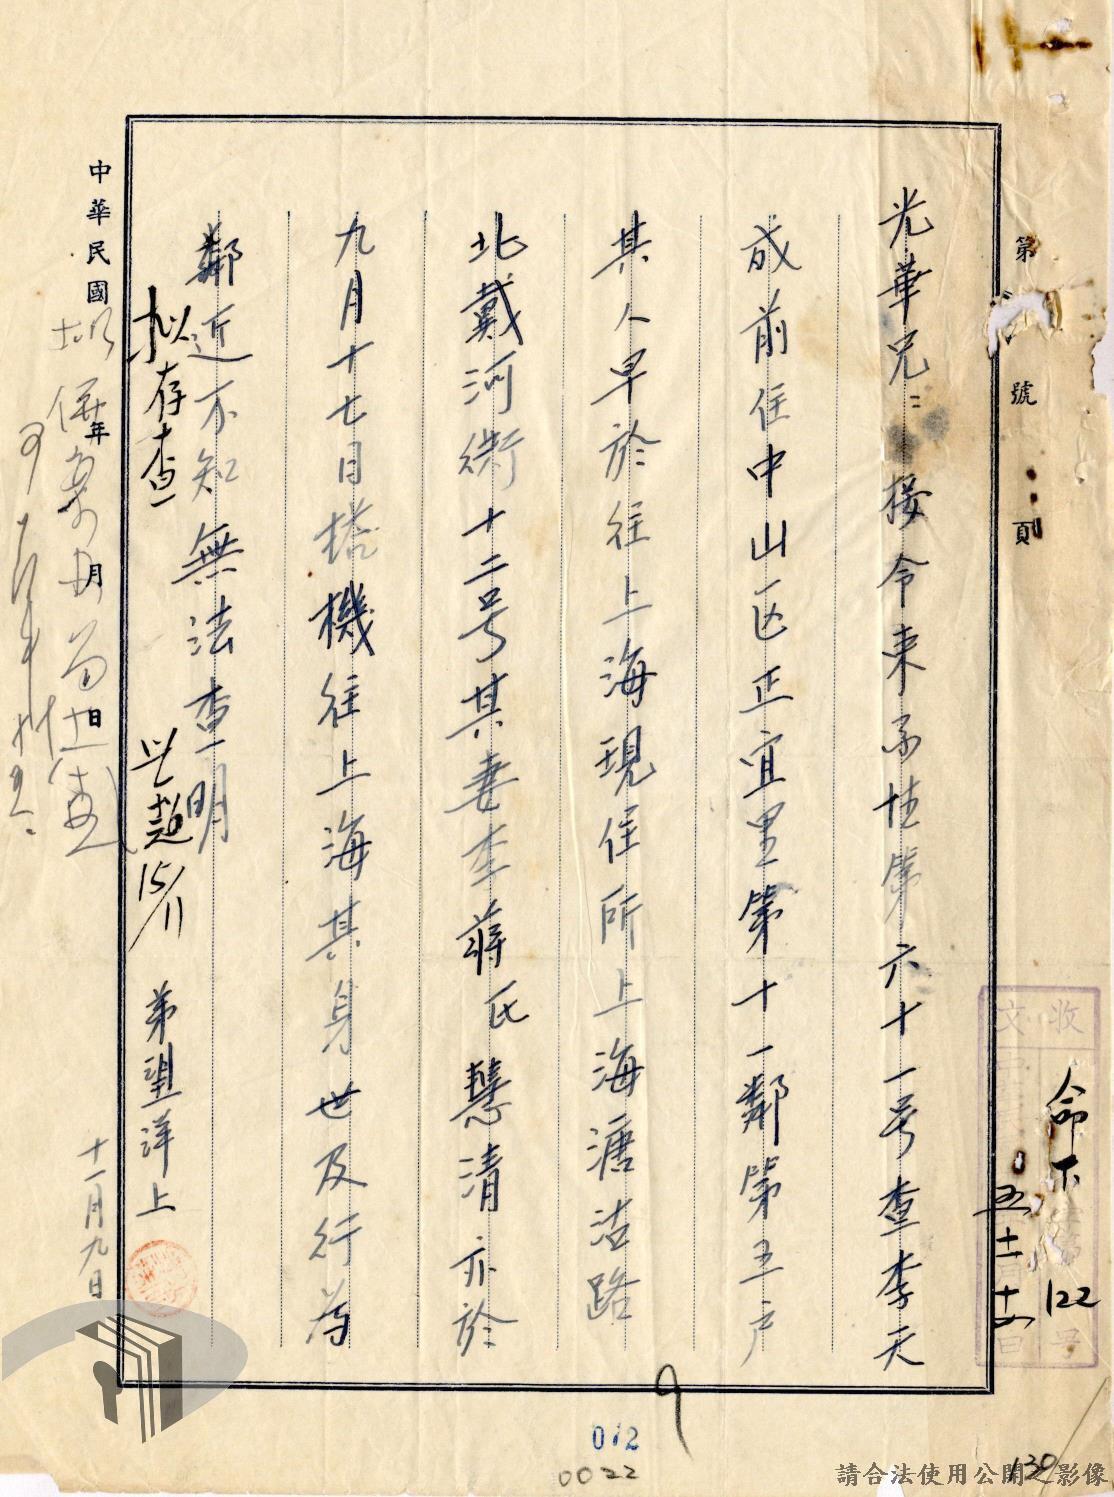 第 號 頁
光華兄：接令東字情第六十一号查李天
成前住中山区正宜里第十一鄰第五户
其人早於往上海現住所上海溏沽路
北戴河衖十二号其妻李蔣氏慧清亦於
九月十七日搭機往上海其身世及行為
鄰近不知無法查明
弟望洋上
十一月九日
拟存查
15/11
中華民國 年 月 日
收文
122
号
012
0022
130
請合法使用公開之影像